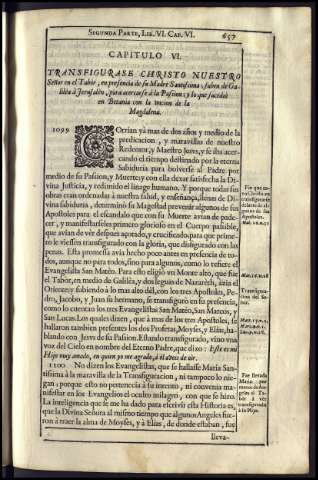 SEGUNDA PARTE, LIB. VI. CAP. VI.
657
CAPITULO VI.
TRANSFIGURASE CHRISTO NUESTRO
Señor en el Tabòr, en presencia de su Madre Santissima; suben de Ga-
lilèa à Jerusalèn, para acercarse à la Passion; y lo que sucediò
en Betania con la uncion de la
Magdalena.
1099 COrrian yà mas de dos años y medio de la
predicacion, y maravillas de nuestro
Redentor, y Maestro Jesvs, y se iba acer-
cando el tiempo destinado por la eterna
Sabiduria para bolverse al Padre por
medio de su Passion, y Muerte; y con ella dexar satisfecha la Di-
vina Justicia, y redimido el linage humano. Y porque todas sus
obras eran ordenadas à nuestra salud, y enseñança, llenas de Di-
vina sabiduria, determinò su Magestad prevenir algunos de sus
Apostoles para el escandalo que con su Muerte avian de pade-
cer, y manifestarseles primero glorioso en el Cuerpo passible,
que avian de ver despues açotado, y crucificado, para que prime-
ro le viessen transfigurado con la gloria, que disfigurado con las
penas. Esta promessa avia hecho poco antes en presencia de to-
dos, aunque no para todos, sino para algunos, como lo refiere el
Evangelista San Matèo. Para esto eligiò un Monte alto, que fue
el Tabòr, en medio de Galilèa, y dos leguas de Nazarèth, àzia el
Oriente: y subiendo à lo mas alto dèl, con los tres Apostoles, Pe-
dro, Jacobo, y Juan su hermano, se transfigurò en su presencia,
como lo cuentan los tres Evangelistas San Matèo, San Marcos, y
San Lucas. Los quales dizen, que à mas de los tres Apostoles, se
hallaron tambien presentes los dos Profetas, Moysès, y Elias, ha-
blando con Jesvs de su Passion. Estando transfigurado, vino una
voz del Cielo en nombre del Eterno Padre, que dixo: Este es mi
Hijo muy amado, en quien yo me agrado, à èl aveis de oir.
1100 No dizen los Evangelistas, que se hallasse Maria San-
tissima à la maravilla de la Transfiguracion, ni tampoco lo nie-
gan; porque esto no pertenecia à su intento, ni convenia ma-
nifestar en los Evangelios el oculto milagro, con que se hizo.
La inteligencia que se me ha dado para escrivir esta Historia es,
que la Divina Señora al mismo tiempo que algunos Angeles fue-
ron à traer la alma de Moysès, y à Elias, de donde estaban, fue
lleva-
Transfigura-
cion del Se-
ñor.
Fue llevada
Maria por
manos de An-
geles al Ta-
bòr à ver
transfigurado
à su Hijo.